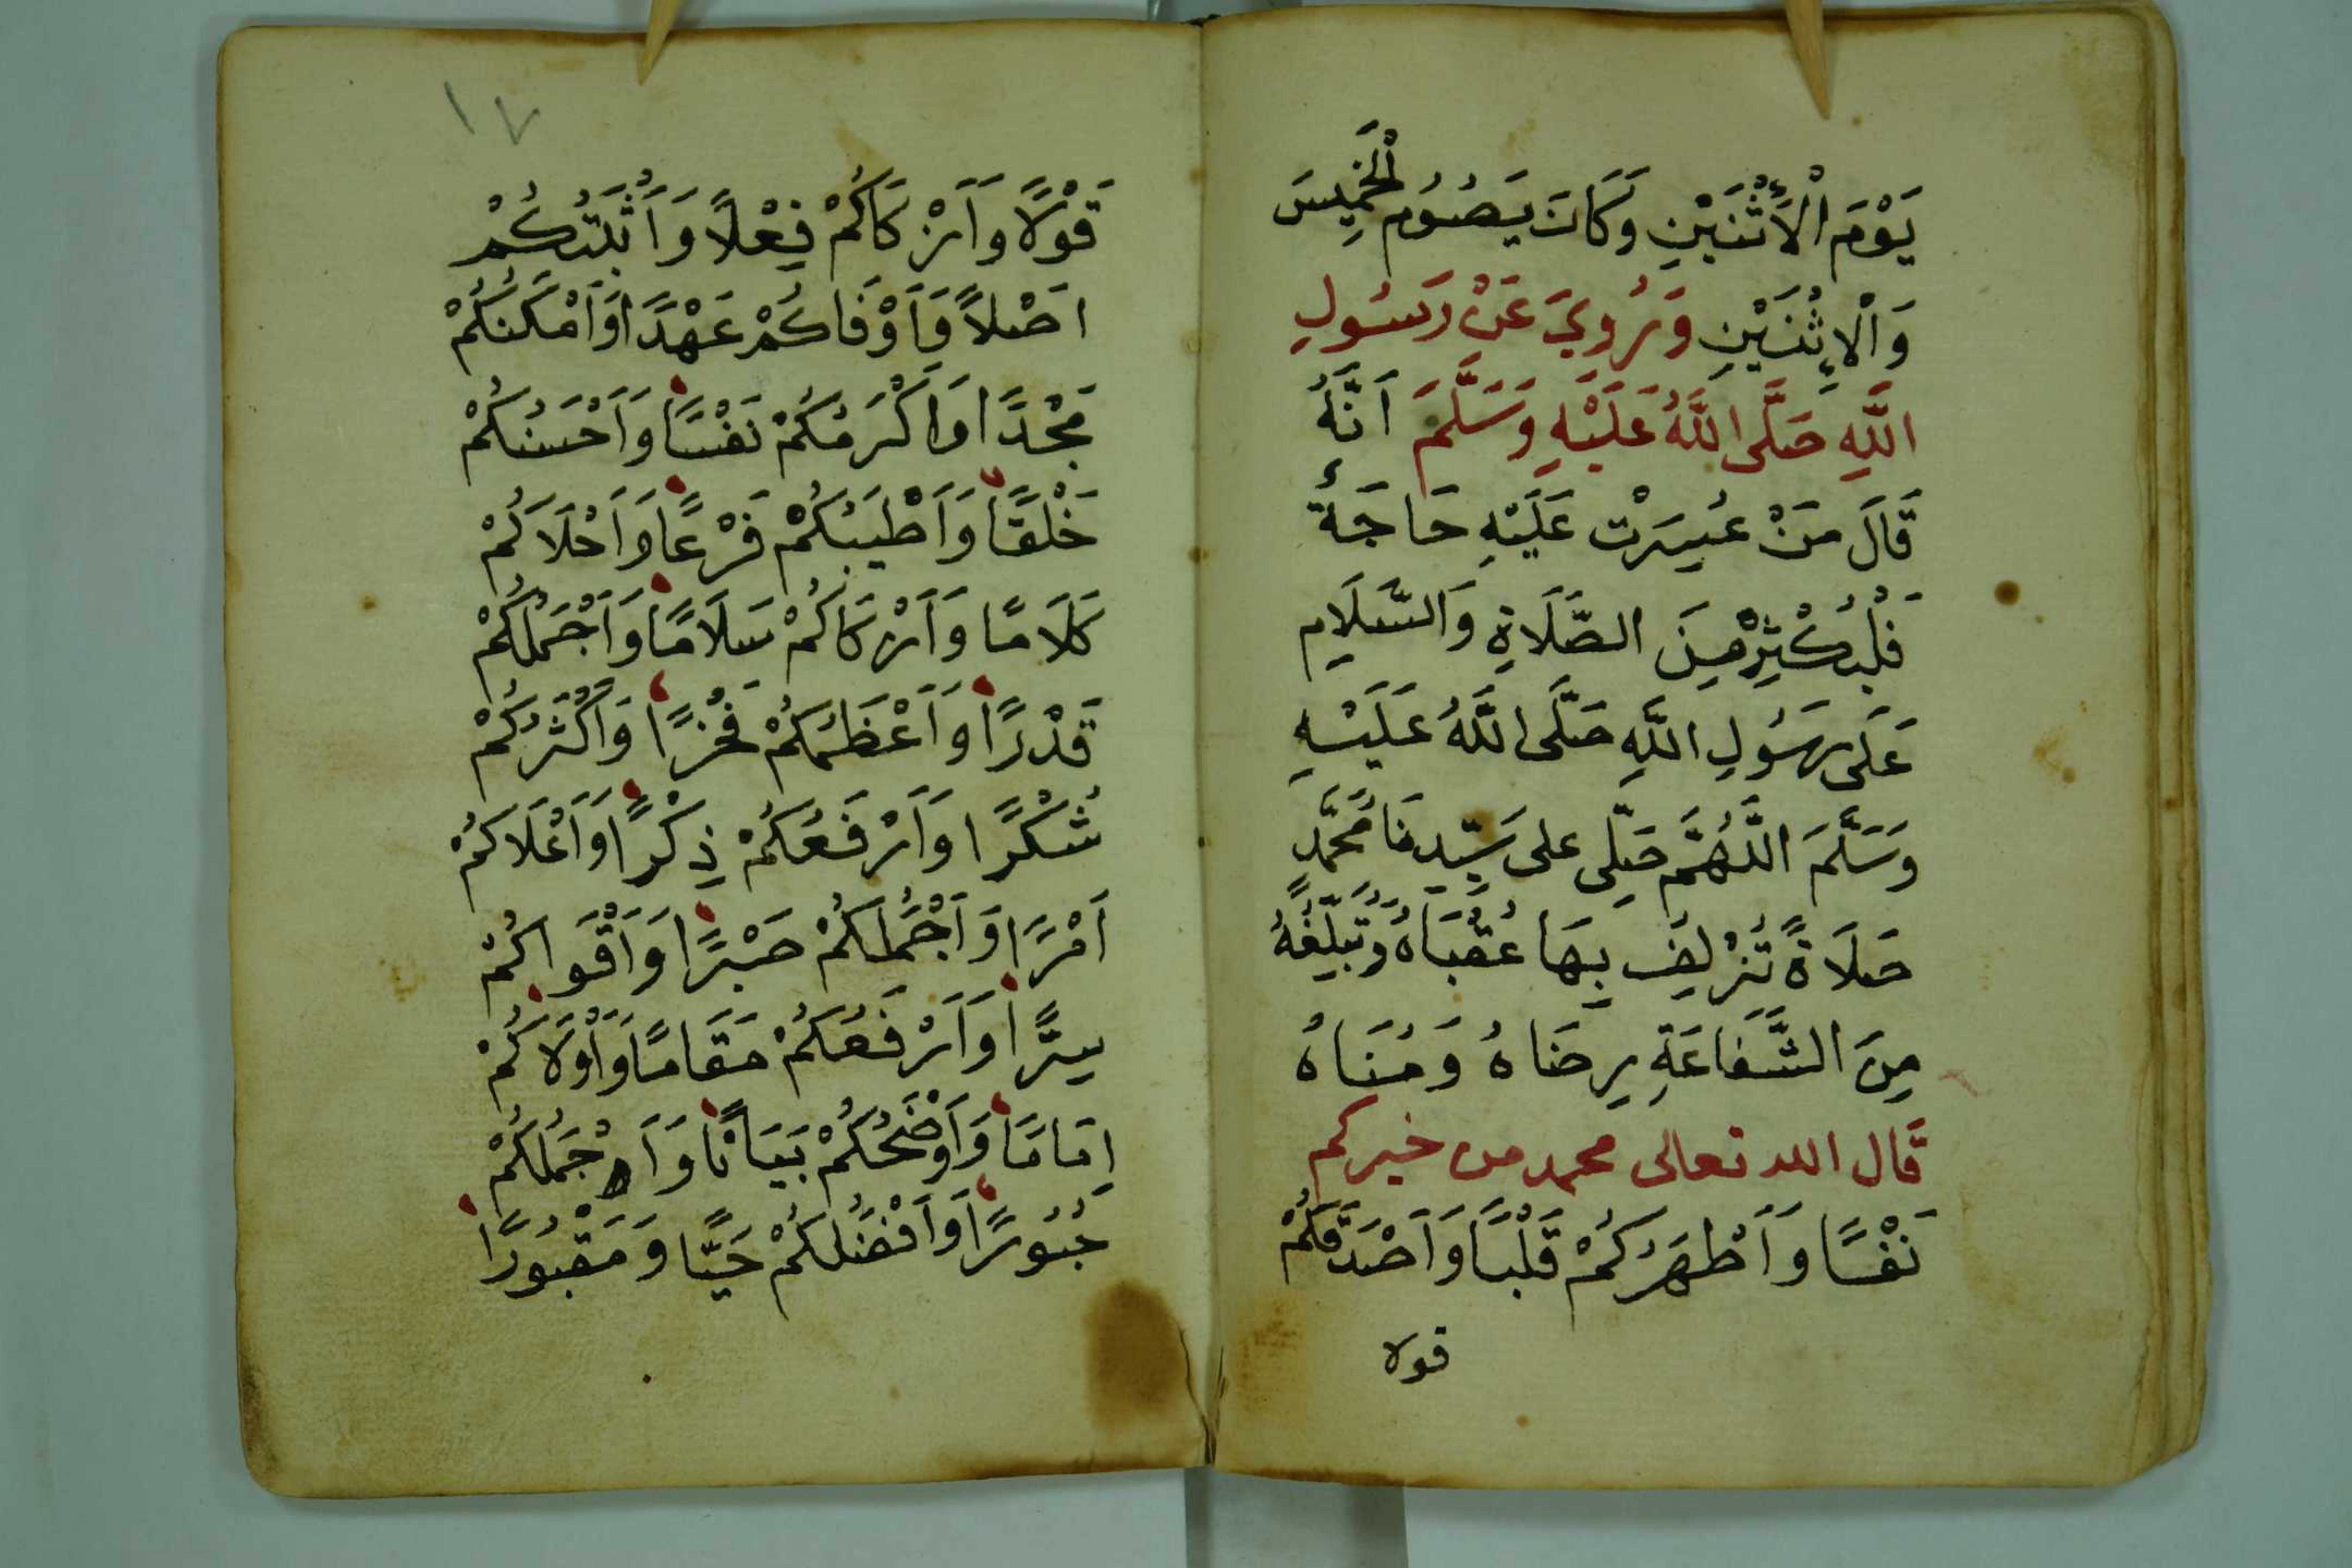 يَوْمَ الْأَثْنَيْنِ وَكَانَ يَصُوُم الْخَمِيسَ
وَالْإِثْنَيْنِ وَرُوِيَ عَنْ رَسُولِ
اللَّهِ صَلَّى اللَّهُ عَلَيْهِ وَسَلَّمَ اَنَّهُ
قَالَ مَنْ عَسِرَتْ عَلَيْهِ حَاجَةٌ
فَلْيُكْثِرْ مِنَ الصَّلَاةِ وَالسَّلَامِ
عَلَى رَسُولِ اللَّهِ صَلَّى اللَّهُ عَلَيْهِ
وَسَلَّمَ اللَّهُمَّ صَلِّى على سَيِّدِنَا مُحَمَّدٍ
صَلَاةً تُزْلِفُ بِهَا عُقْبَاهُ وَتُبَلِّغُهُ
مِنَ الشَّفَاعَةِ رِضَاهُ وَمُنَاهُ
قال الله تعالى محمد من خيركم
نَفْسًا وَاَطْهَرُكُمْ قَلْبًا وَاَصْدَقَكُمْ
قولا
١٧
قَوْلًا وَاَزْكَاكُمْ فِعْلًا وَاَثْبَتُكُمْ
اَصْلاً وَاَوْفَاكُمْ عَهْدًا وَاَمْكَنُكُمْ
مَجْدًا وَاَكْرَمُكُمْ نَفْسًا وَاَحْسَنُكُمْ
خَلْقًا وَاَطْيَبُكُمْ فَرْعًا وَاَحْلَاكُمْ
كَلَامًا وَاَزْكَاكُمْ سَلَامًا وَاَجْمَلُكُمْ
قَدْرًا وَاَعْظَمُكُمْ فَخْرًا وَاَكْثَرُكُمْ
شُكْرًا وَاَرْفَعُكُمْ ذِكْرًا وَاَعْلَاكُمْ
اَمْرًا وَاَجْمَلُكُمْ صَبْرًا وَاَقْوَاكُمْ
سِرًّا وَاَرْفَعُكُمْ مَقَامًا وَاَوْلَاكُمْ
اِمَامًا وَاَوْضَحُكُمْ بَيَانًا وَاَجْمَلُكُمْ
حُبُورًا وَاَفْضَلُكُمْ حَيًّا وَمَقْبُورًا